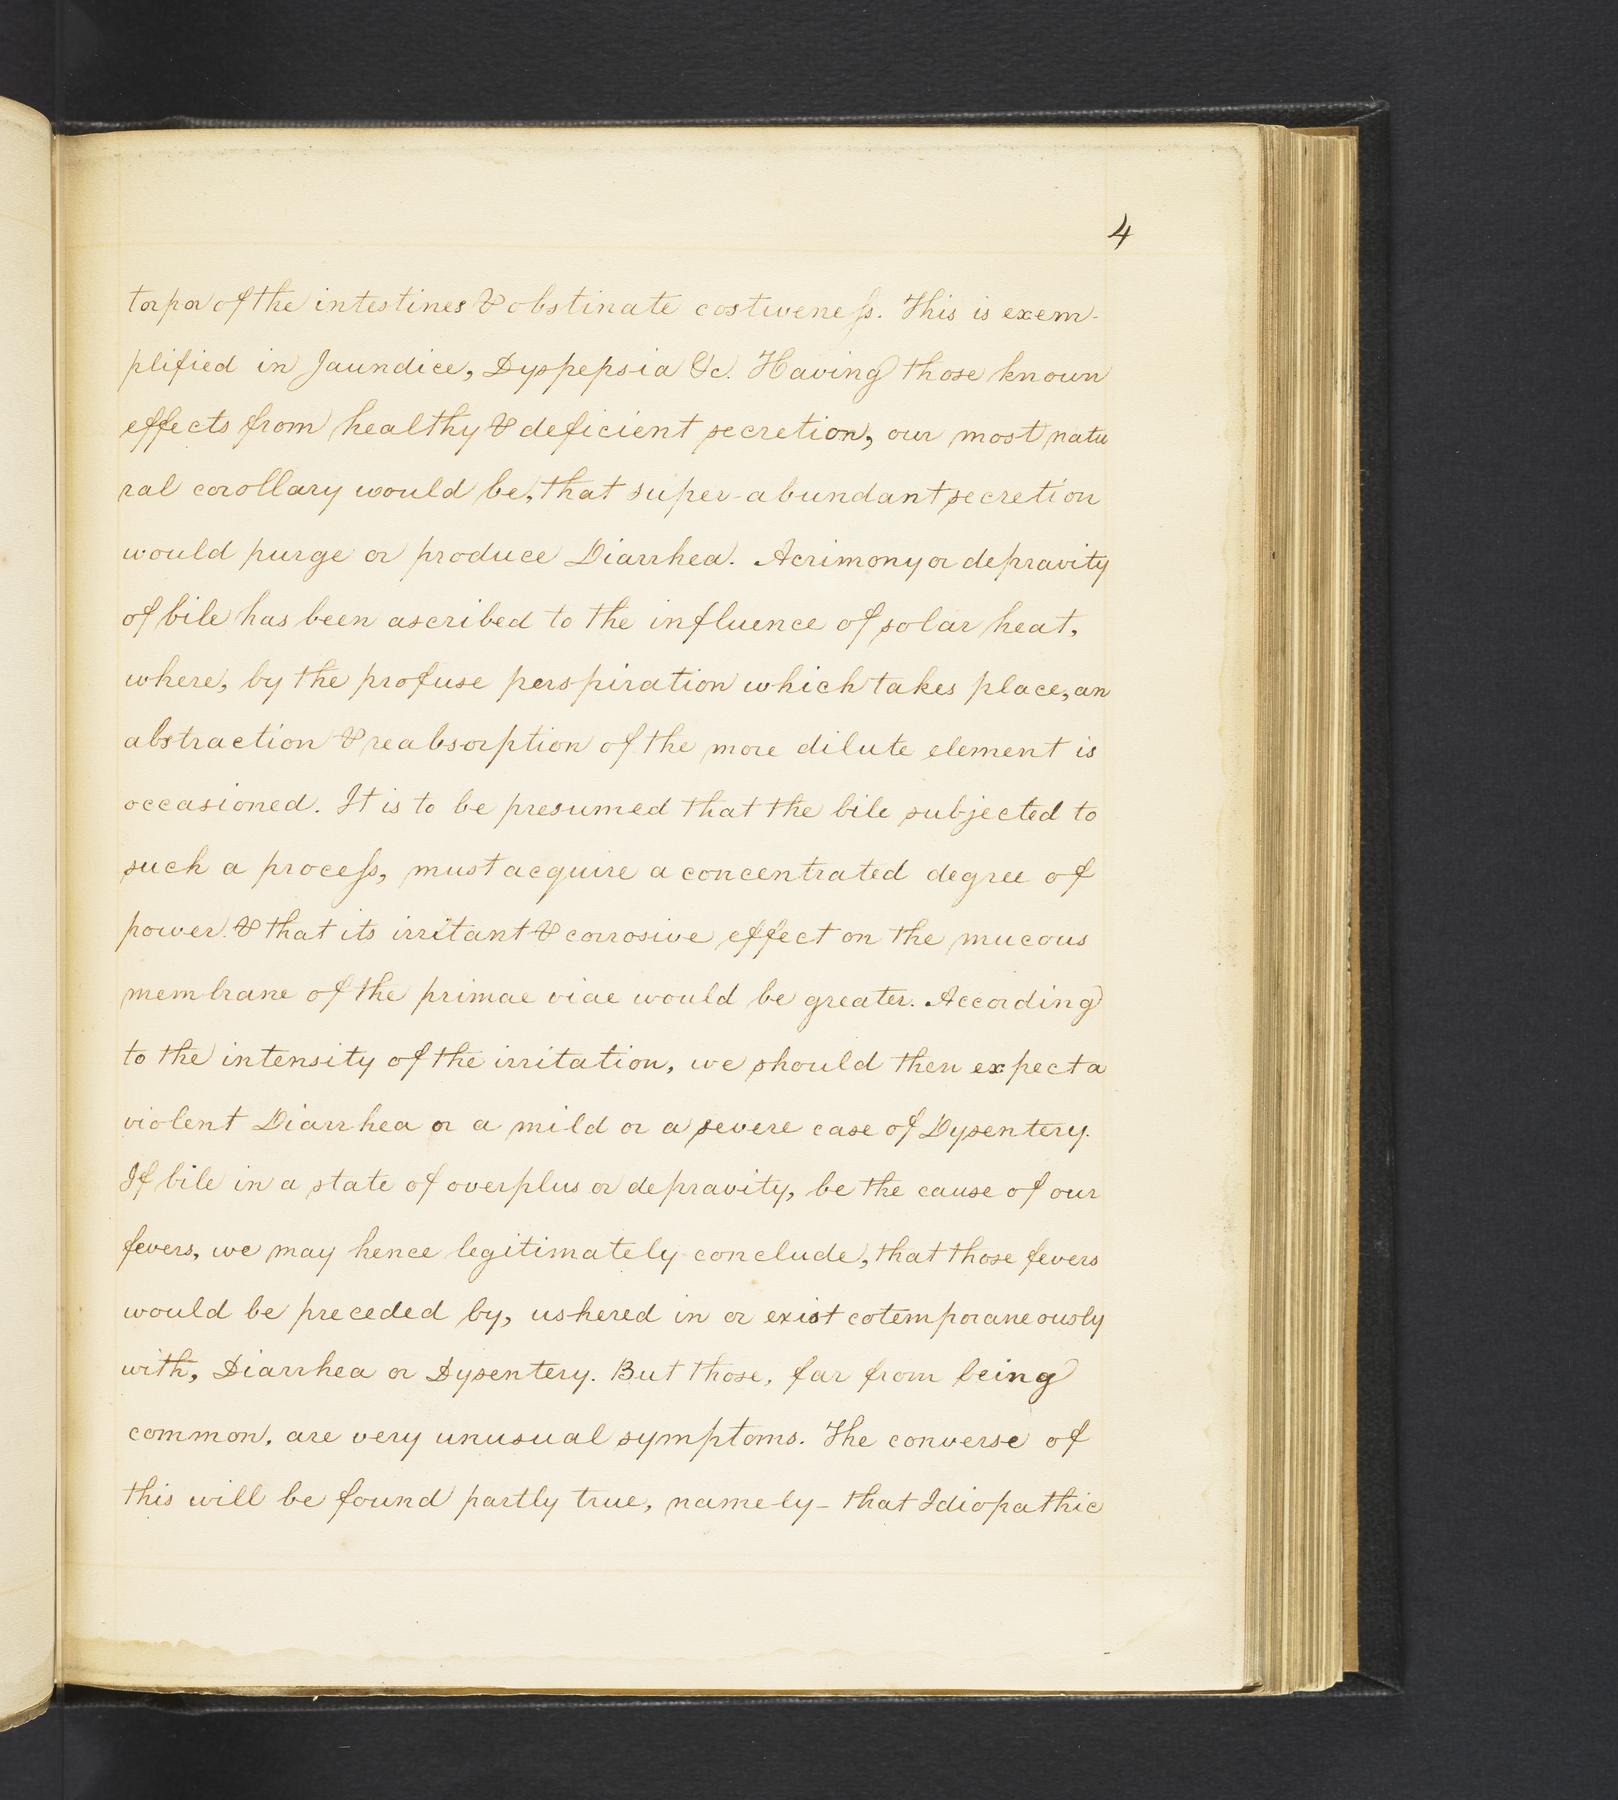 4
torpor of the intestines & obstinate costiveneſs. This is exem-
plified in Jaundice, Dyspepsia &c. Having those known
effects from healthy & deficient secretion, our most natu
ral corollary would be, that super-abundant secretion
would purge or produce Diarrhea. Acrimony or depravity
of bile has been ascribed to the influence of solar heat,
where, by the profuse perspiration which takes place, an
abstraction & reabsorption of the more dilute element is
occasioned. It is to be presumed that the bile subjected to
such a proceſs, must acquire a concentrated degree of
power. & that its irritant & corrosive effect on the mucous
membrane of the primae viae would be greater. According
to the intensity of the irritation, we should then expect a
violent Diarrhea or a mild or a severe case of Dysentery.
If bile in a state of overplus or depravity, be the cause of our
fevers, we may hence legitimately conclude, that those fevers
would be preceded by, ushered in or exist cotemporaneously
with, Diarrhea or Dysentery. But those, far from being
common, are very unusual symptoms. The converse of
this will be found partly true, namely - that Idiopathic